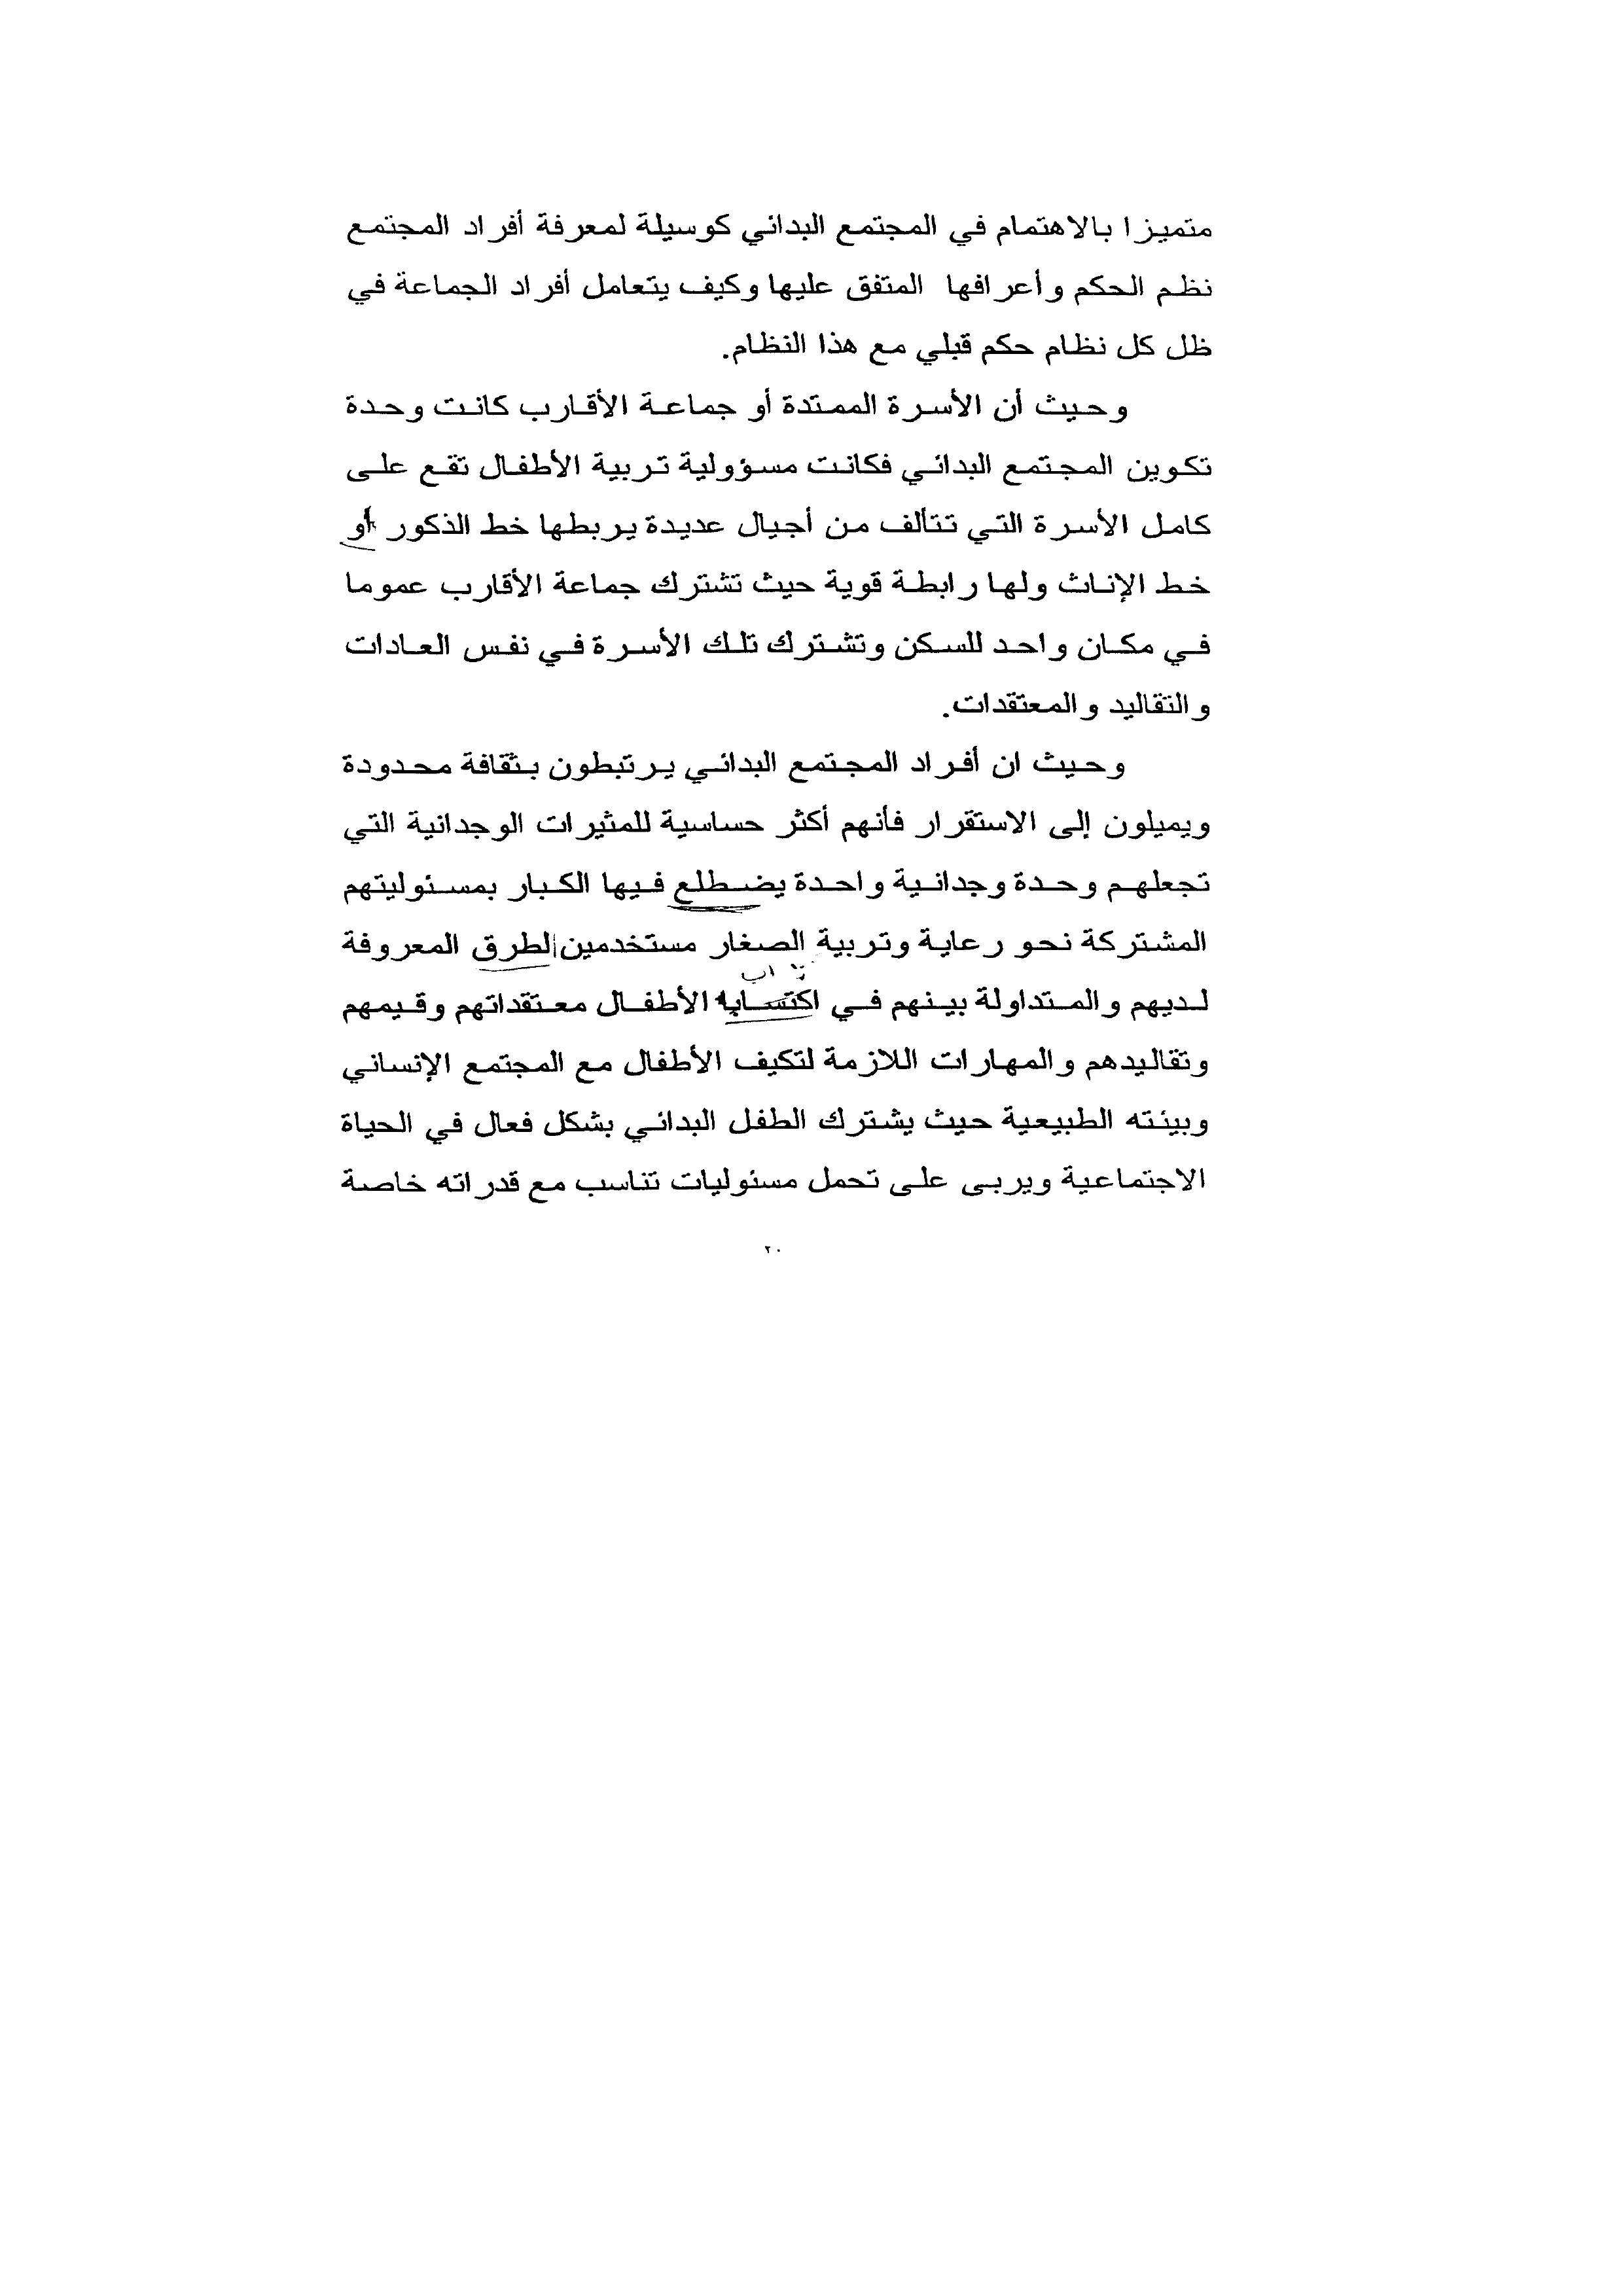 متميزا بالاهتمام في المجتمع البدائي كوسيلة لمعرفة أفراد المجتمع
نظم الحكم وأعرافها المتفق عليها وكيف يتعامل أفراد الجماعة في
ظل كل نظام حكم قبلي مع هذا النظام.
وحيث أن الأسرة الممتدة أو جماعة الأقارب كانت وحدة
تكوين المجتمع البدائي فكانت مسؤولية تربية الأطفال تقع على
كامل الأسرة التي تتألف من أجيال عديدة يربطها خط الذكور أو
خط الإناث ولها رابطة قوية حيث تشترك جماعة الأقارب عموما
في مكان واحد للسكن وتشترك تلك الأسرة في نفس العادات
والتقاليد والمعتقدات.
وحيث ان أفراد المجتمع البدائي يرتبطون بثقافة محدودة
ويميلون إلى الاستقرار فأنهم أكثر حساسية للمثيرات الوجدانية التي
تجعلهم وحدة وجدانية واحدة يضطلع فيها الكبار بمسئوليتهم
المشتركة نحو رعاية وتربية الصغار مستخدمين الطرق المعروفة
لديهم والمتداولة بينهم في الأطفال معتقداتهم وقيمهم
وتقاليدهم والمهارات اللازمة لتكيف الأطفال مع المجتمع الإنساني
وبيئته الطبيعية حيث يشترك الطفل البدائي بشكل فعال في الحياة
الاجتماعية ويربى على تحمل مسئوليات تناسب مع قدراته خاصة
٢٠